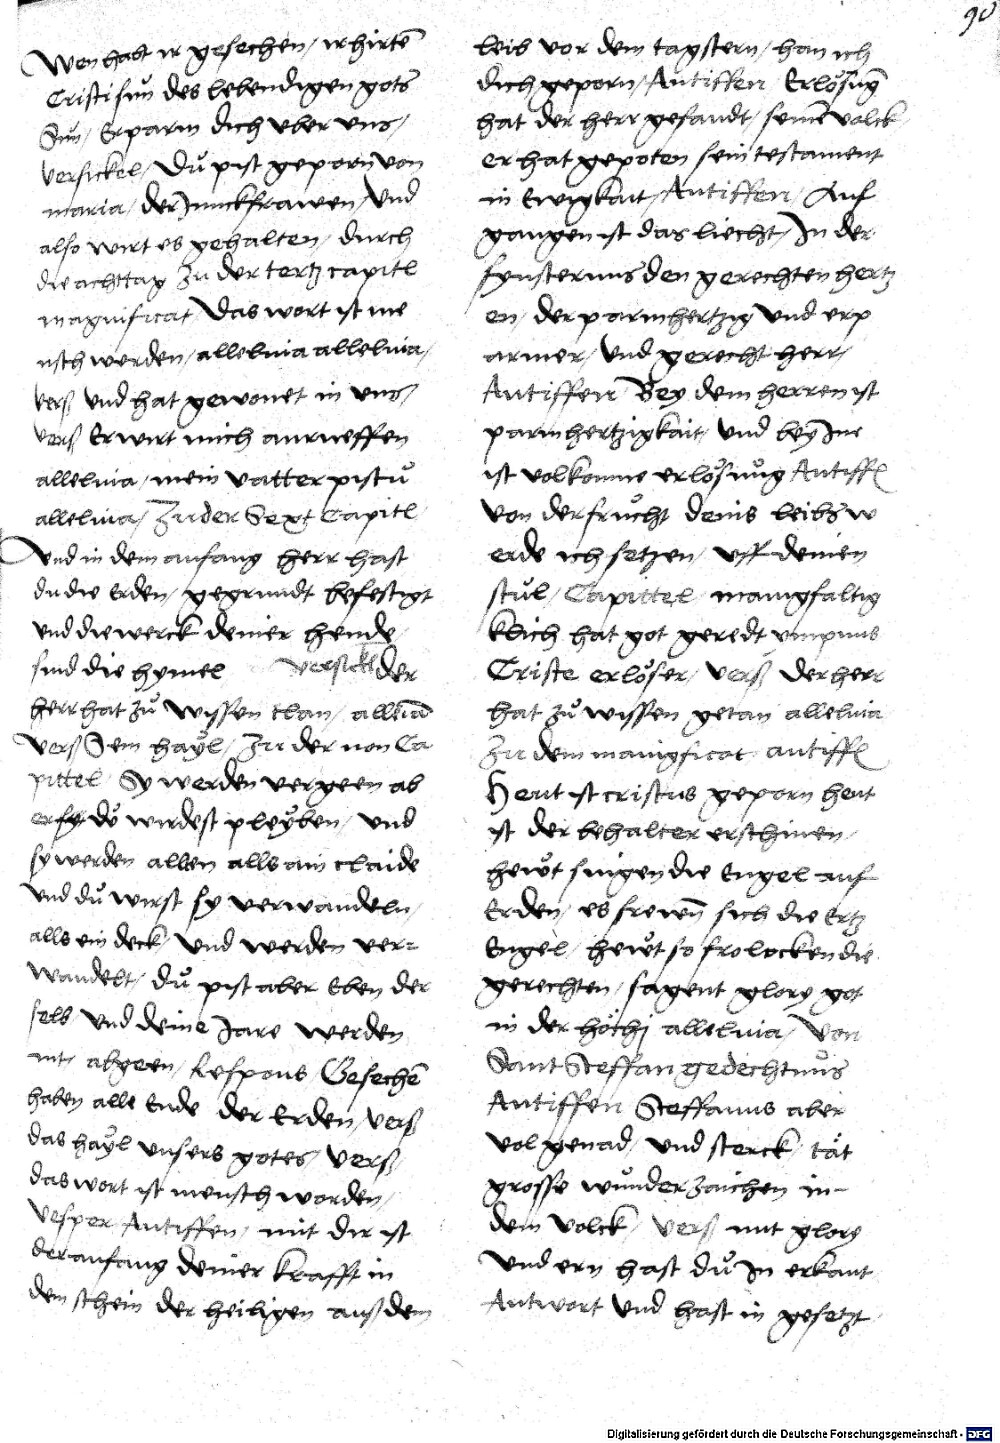 90
Wen habt ir gesechen / ir hirtē
Cristi sun des lebendigen gots
Sun / Erparm dich uber uns /
versickel / Dů pist geporn von
maria / der Junckfrawen / Und
also wirt es gehalten / durch
die achttag Zu der tertz capitl
magnificat Das wort ist me
nsch werden / alleluia alleluia /
vers Und hat gewonet in uns /
vers Er wirt mich anrueffen
alleluia / mein vatter pistů
alleluia / Zu der Sext Capitl
Und in dem anfang herr hast
du die Erden / gegrundt befestigt
und die werck deiner hende /
sind die hymel versickl der
herr hat zů wissen than / alleuia
vers Sein hayl / Zu der non Ca
pittel Sy werden vergeen ab
er dů wirdest pleyben / und
sy werden alten alls ain claide
Und dů wirst sy verwandeln /
alls ein deck / und werden ver=
wandelt / dů pist aber Eben der
selb und deine Jare werden
nit abgeen / Respons Gesechē
haben alle Ende der Erden / vers
das hayl unsers gotes / vers /
das wort ist mensch worden /
Vesper Antiffen / mit dir ist
der anfang deiner krafft in
dem schein der heiligen auß dem
leib vor dem tagstern / han ich
dich geporn / Antiffen Erlösūg
hat der herr gesandt / seinē volck
er hat gepoten sein testament
in Ewigkait / Antiffen / Auf
gangen ist das liecht / In der
fynsternus den gerechten hertz
en / der parmhertzig und erp
armer / und gerecht herr /
Antiffen Bey dem herren ist
parmhertzigkait / und bey Ine
ist volkomne erlösnůg Antiffl
Von der frucht deins leibs w
erde ich setzen / uff deinen
stůl / Capittel / manigfaltig
klich hat got geredt ympnus
Criste erlöser / vers der herr
hat zů wissen getan alleluia
Zu dem manigficat antiffl
Heut ist cristus geporn heut
ist der behalter erschinen /
hewt singen die Engel auf
Erden / es frewñ sich die Ertz
Engel / hewt so frolocken die
gerechten / sagent glory got
in der höchj alleluia / Von
Sant Steffan gedechtnus
Antiffen Steffanus aber
vol genad / und sterck / tät
grosse wunderzaichen in
dem volck / vers mit glory
und ern hast dů In erkant
Antwort Und hast in gesetzt
Digitalisierung gefördert durch die Deutsche Forschungsgemeinschaft - DFG